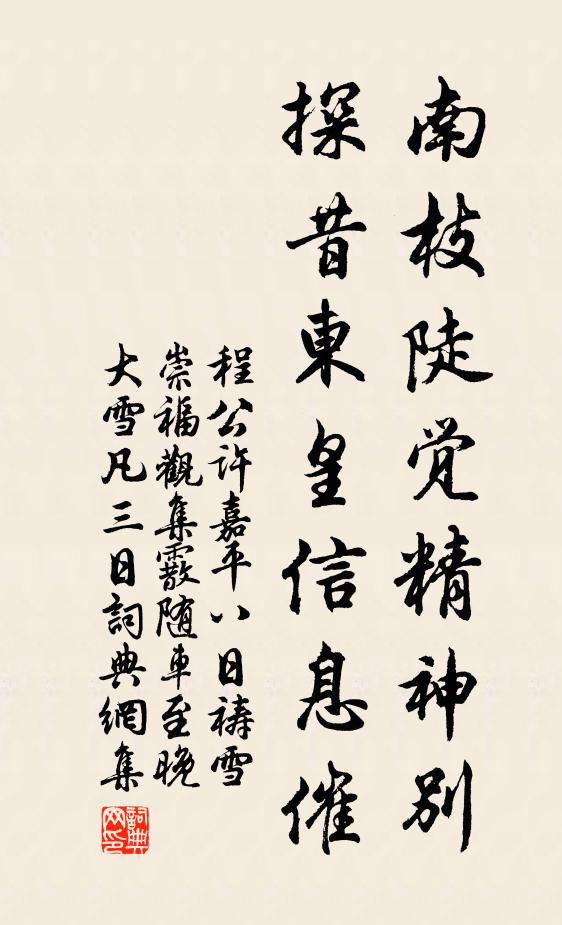 南枝陡觉精神别
探昔東皇信息催
程公許嘉平八日禱雪
崇福觀集霰随車至晚
大雪凡三日詞典網集
詞典网印